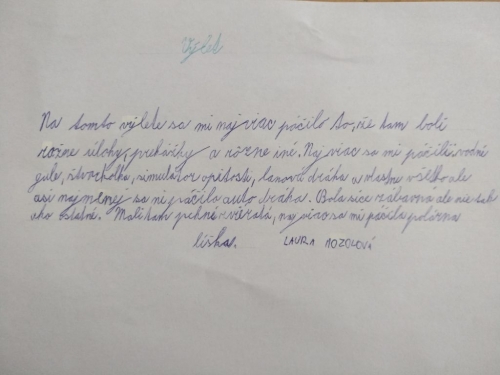 Výlet
Na tomto výlete sa mi naj viac páčilo to, že tam boli
rôzne úlohy, prekážky a rôzne iné. Naj viac sa mi páčili vodné
gule, štvorkolka, simulátor opitosti, lanová dráha a vlastne všetko ale
asi naj menej sa mi páčila auto dráha. Bola síce zábavná ale nie tak
ako ostatné. Mali tam pekné zvieratá, naj viac sa mi páčila polárna
líška. LAURA MOZOLOVÁ